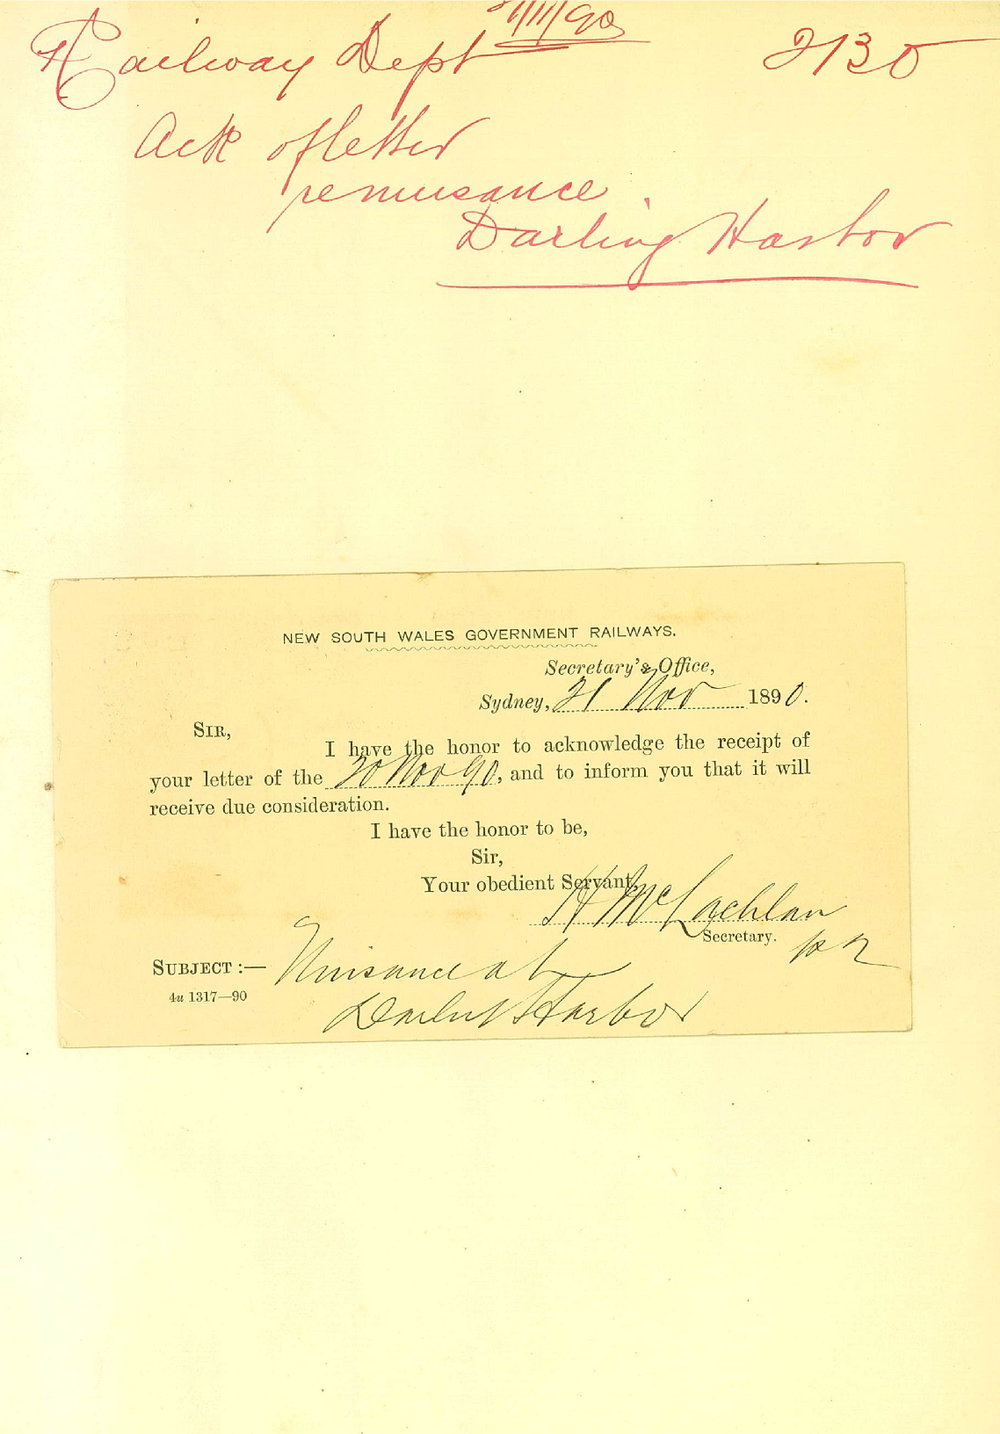 Railway Dept 21/11/90 2130
Ack of letter
re nuisance
Darling Harbor
NEW SOUTH WALES GOVERNMENT RAILWAYS.
Secretary's Office,
Sydney, 21 Nov 1890.
SIR,
I have the honor to acknowledge the receipt of
your letter of the 20 Nov 90, and to inform you that it will
receive due consideration.
I have the honor to be,
Sir,
Your obedient Servant,
H McLachlan
Secretary.
SUBJECT :— Nuisance at
4u 1317—90
Darling Harbor